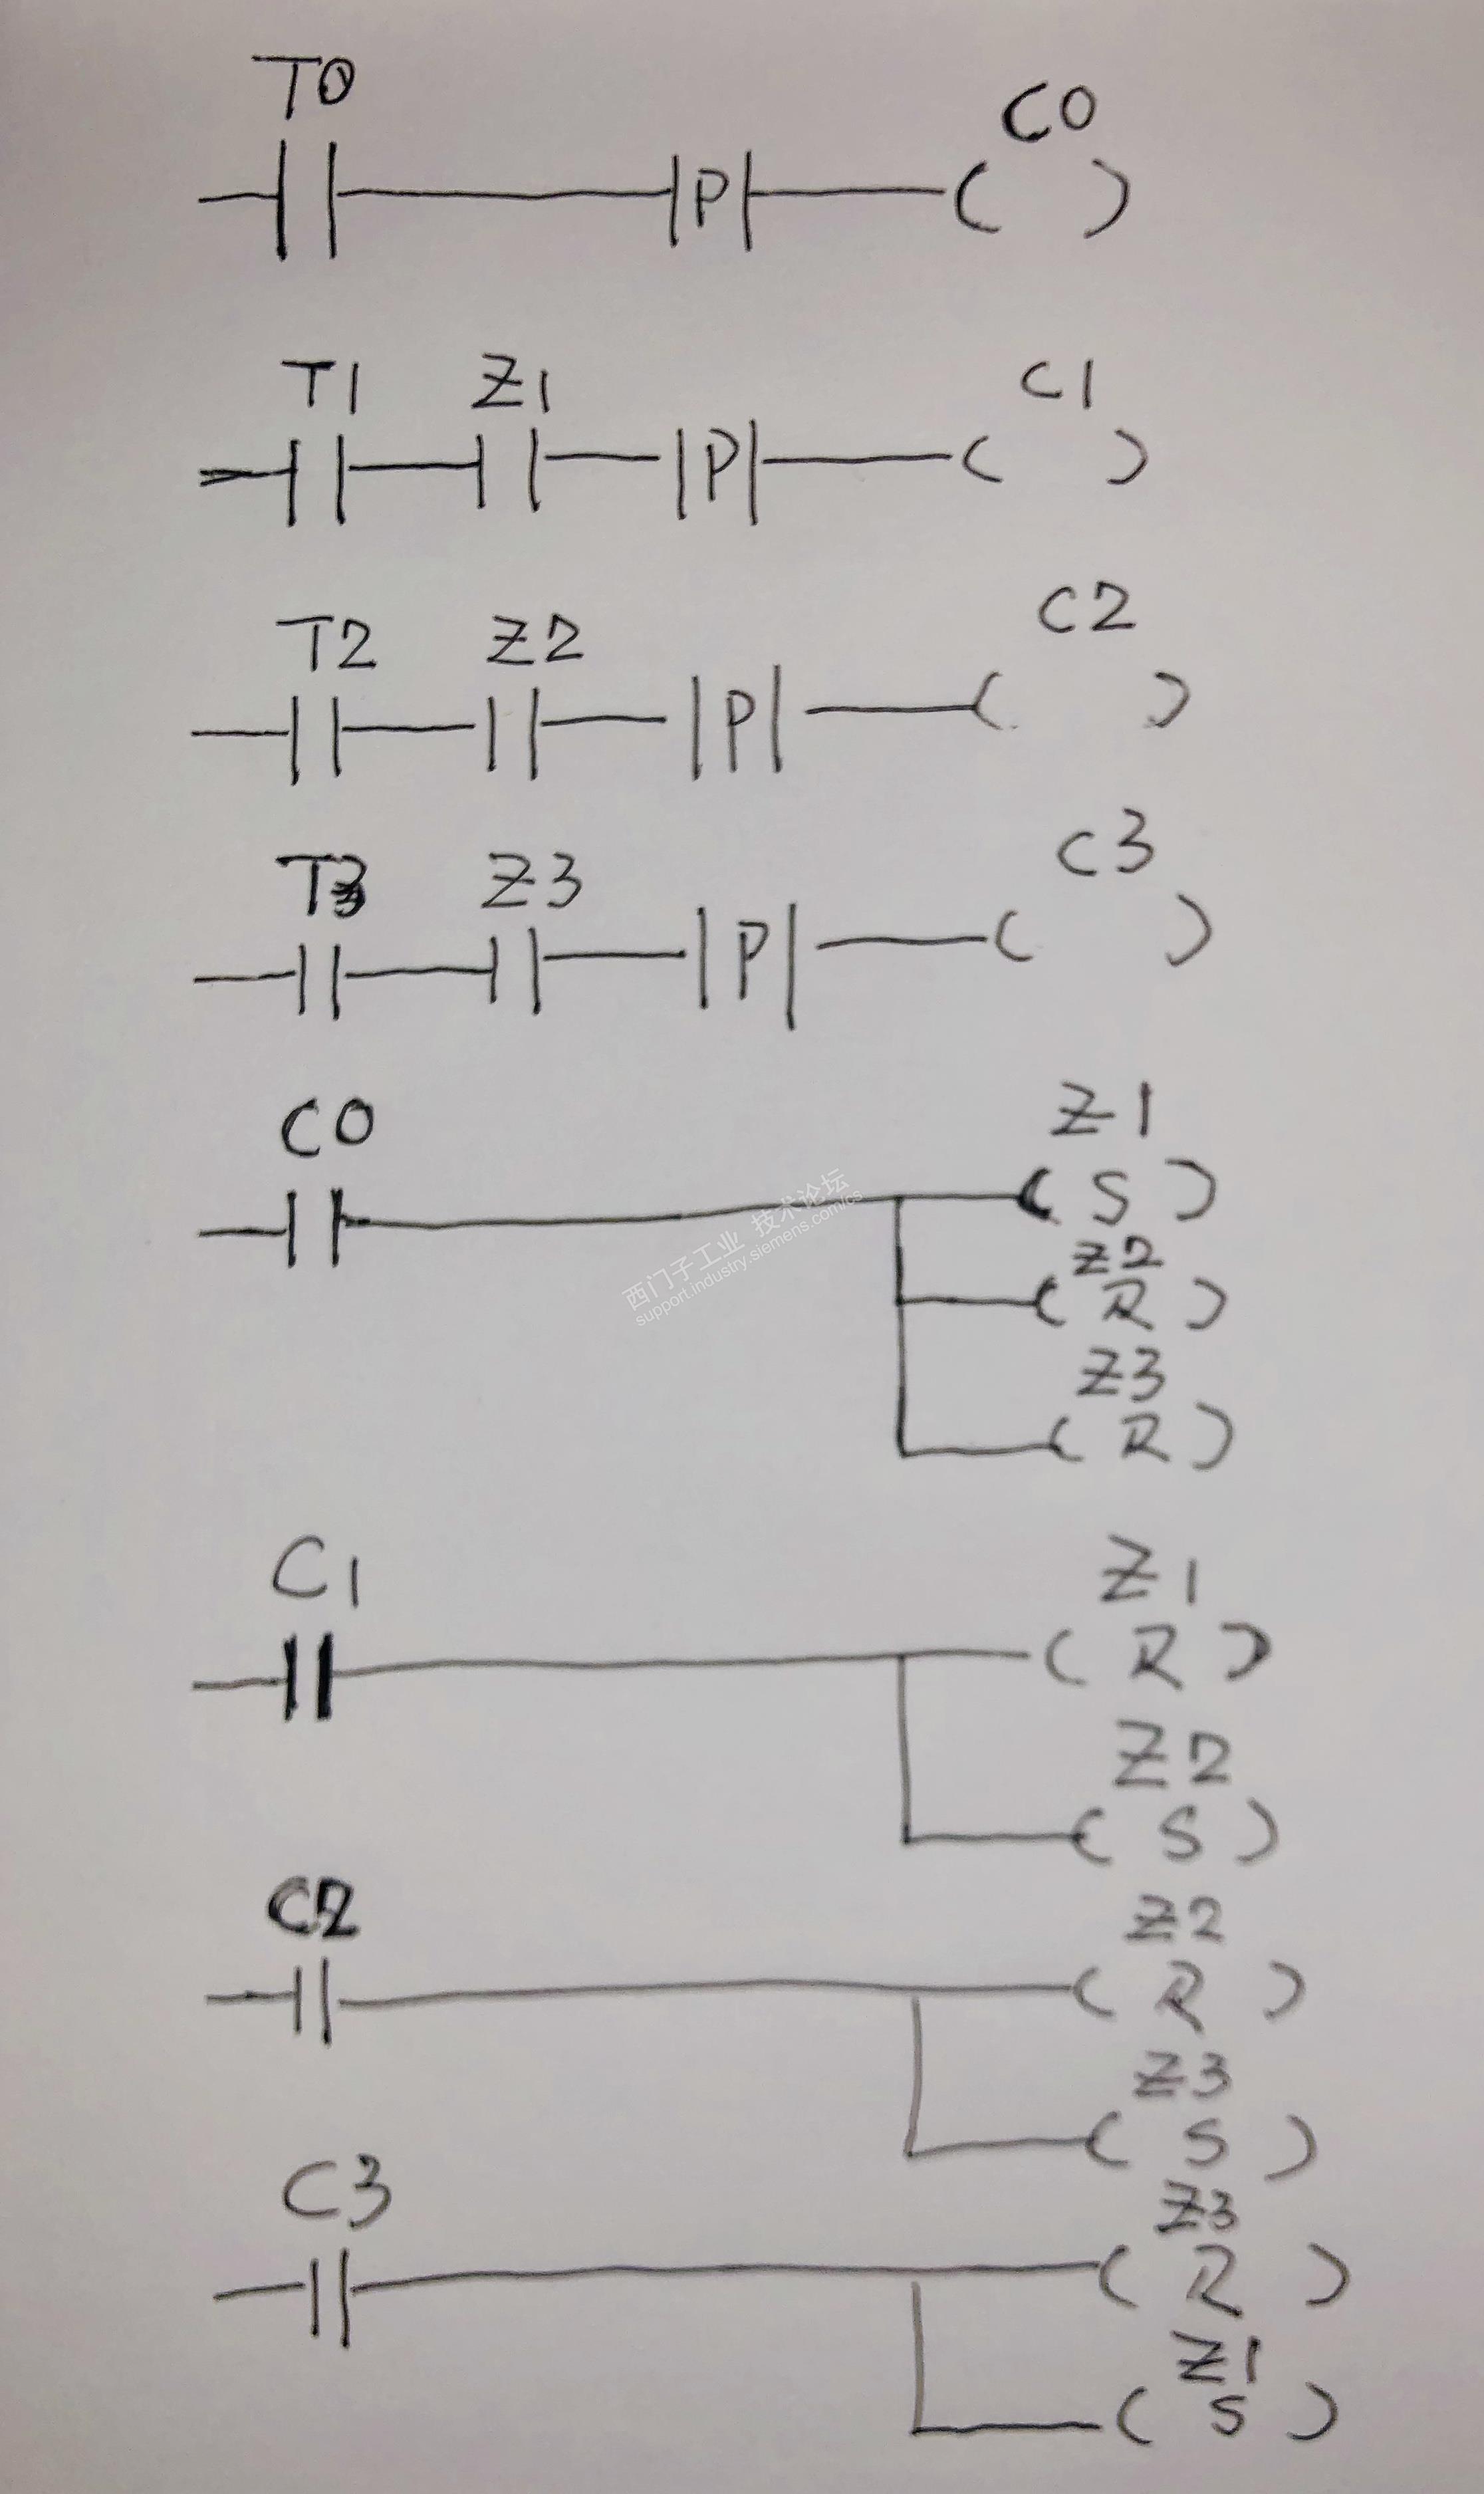 T0 C0
P
T1 Z1 C1
P
T2 Z2 C2
P
T3 Z3 C3
P
C0 Z1
S
Z2
R
Z3
R
西门子工业 技术论坛
support.industry.siemens.com/cs
C1 Z1
R
Z2
S
C2 Z2
R
Z3
S
C3 Z3
R
Z1
S